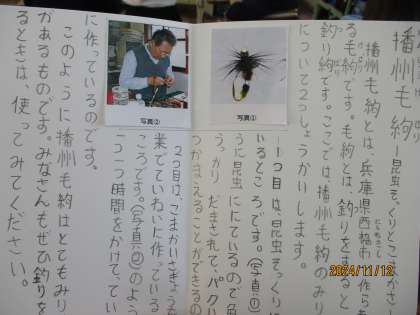 播州毛鉤―昆虫そっくりとこまかいさ
播州毛鉤とは、兵庫県西脇市で作られ
る毛鉤です。毛鉤とは、釣りをすると
釣り鉤です。ここでは、播州毛鉤のみり
について2つしょうかいします。
写真①
一つ目は、昆虫そっくりに
いるところです。(写真①)
うに昆虫ににているので魚
うっかりだまされてパクリ
つかまえることができるの
写真②
2つ目は、こまかいさぎょうを
業でていねいに作っている
ころです。(写真②)のよう
一つ一つ時間をかけてい
に作っているのです。
このように播州毛鉤はとてもみり
があるものです。みなさんもぜひ釣りを
るときは、使ってみてください。
2024/11/12